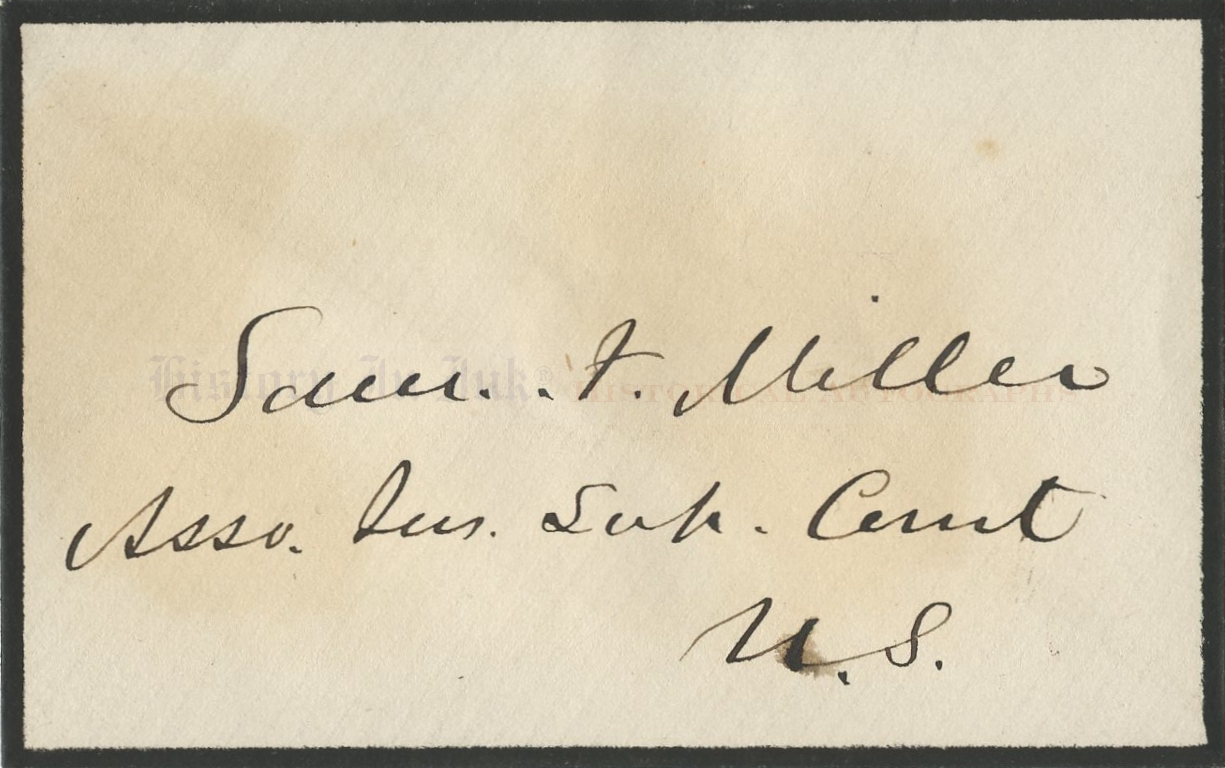 Sam. F. Miller
History In Ink® Historical Autographs
Asso. Jus. Sup. Court
U. S.